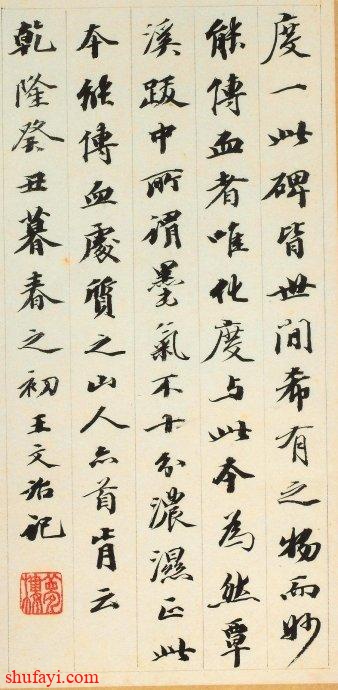 度一此碑皆世间希有之物而妙
能傳血者唯化度与此本為然覃
溪跋中所謂墨氣不十分濃濕正此
本能傳血處質之山人亦首肯云
乾隆癸丑暮春之初王文治記
夢樓
shufayi.com